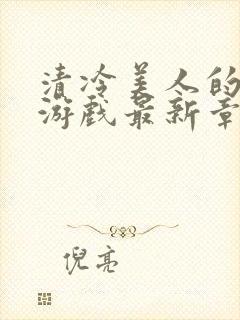 清冷美人的
游戏最新章
倪亮